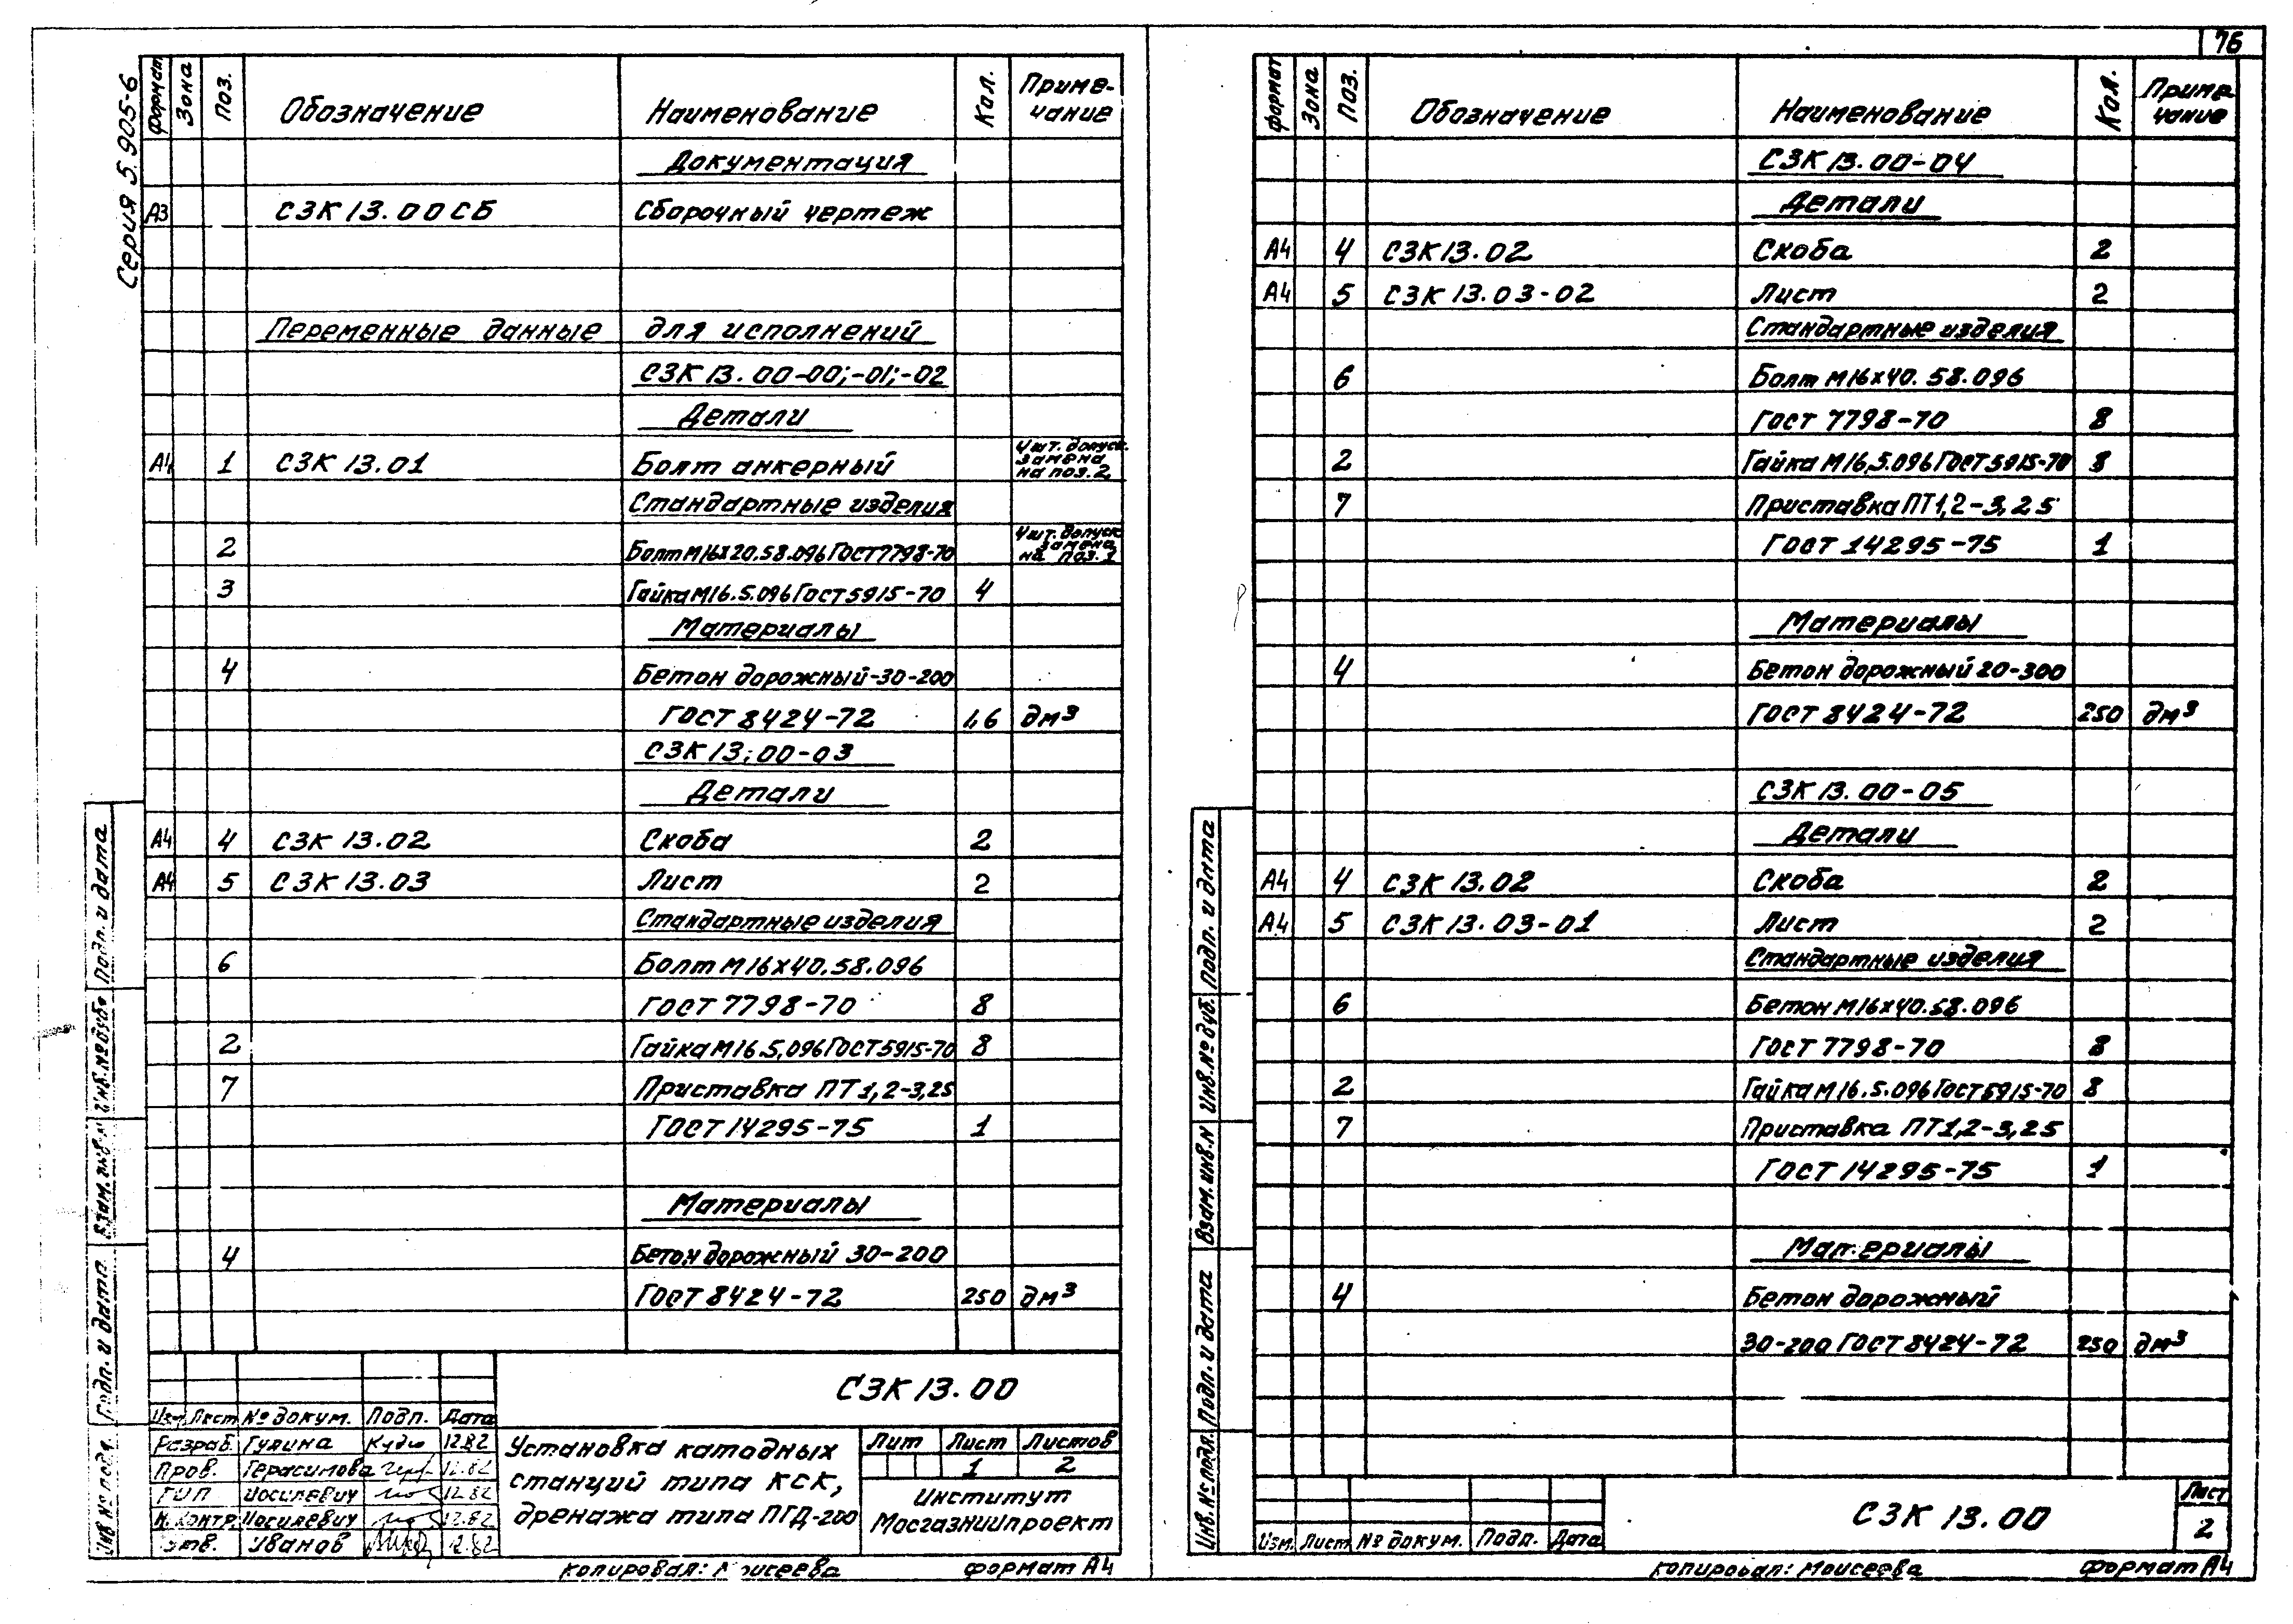 76
Серия 5.905-6
Формат Зона Поз. Обозначение Наименование Кол. Приме-
чание
Документация
А3 СЗК 13.00СБ Сборочный чертеж
Переменные данные для исполнений
СЗК 13.00-00;-01;-02
Детали
А4 1 СЗК 13.01 Болт анкерный 4шт. допуск.
замена
на поз.2
Стандартные изделия
2 Болт М16х20.58.096 ГОСТ 7798-70 4шт. допуск
замена
на поз.1
3 Гайка М16.5.096 ГОСТ 5915-70 4
Материалы
4 Бетон дорожный-30-200
ГОСТ 8424-72 1,6 дм³
СЗК 13;00-03
Детали
А4 4 СЗК 13.02 Скоба 2
А4 5 СЗК 13.03 Лист 2
Стандартные изделия
6 Болт М16х40.58.096
ГОСТ 7798-70 8
2 Гайка М16.5,096 ГОСТ 5915-70 8
7 Приставка ПТ1,2-3,25
ГОСТ 14295-75 1
Материалы
4 Бетон дорожный 30-200
ГОСТ 8424-72 250 дм³
Подп. и дата
Инв.№ дубл
Взам. инв.№
Подп. и дата
Инв № подл.
СЗК 13.00
Изм Лист № докум. Подп. Дата
Разраб. Гулина 12.82
Пров. Герасимова 12.82
ГИП Иосилевич 12.82
Н. контр. Иосилевич 12.82
Утв. Иванов 12.82
Установка катодных
станций типа КСК,
дренажа типа ПГД-200
Лит Лист Листов
1 2
Институт
Мосгазниипроект
Копировал: Моисеева формат А4
Формат Зона Поз. Обозначение Наименование Кол. Приме
чание
СЗК 13.00-04
Детали
А4 4 СЗК 13.02 Скоба 2
А4 5 СЗК 13.03-02 Лист 2
Стандартные изделия
6 Болт М16х40.58.096
ГОСТ 7798-70 8
2 Гайка М16,5.096 ГОСТ 5915-70 8
7 Приставка ПТ1,2-3,25
ГОСТ 14295-75 1
Материалы
4 Бетон дорожный 20-300
ГОСТ 8424-72 250 дм³
СЗК 13.00-05
Детали
А4 4 СЗК 13.02 Скоба 2
А4 5 СЗК 13.03-01 Лист 2
Стандартные изделия
6 Бетон М16х40.58.096
ГОСТ 7798-70 8
2 Гайка М16.5.096 ГОСТ 5915-70 8
7 Приставка ПТ1,2-3,25
ГОСТ 14295-75 1
Материалы
4 Бетон дорожный
30-200 ГОСТ 8424-72 250 дм³
Подп. и дата
Инв.№ дубл.
Взам.инв.№
Подп. и дата
Инв.№ подл.
Изм. Лист № докум. Подп. Дата
СЗК 13.00
Лист
2
Копировал: Моисеева формат А4